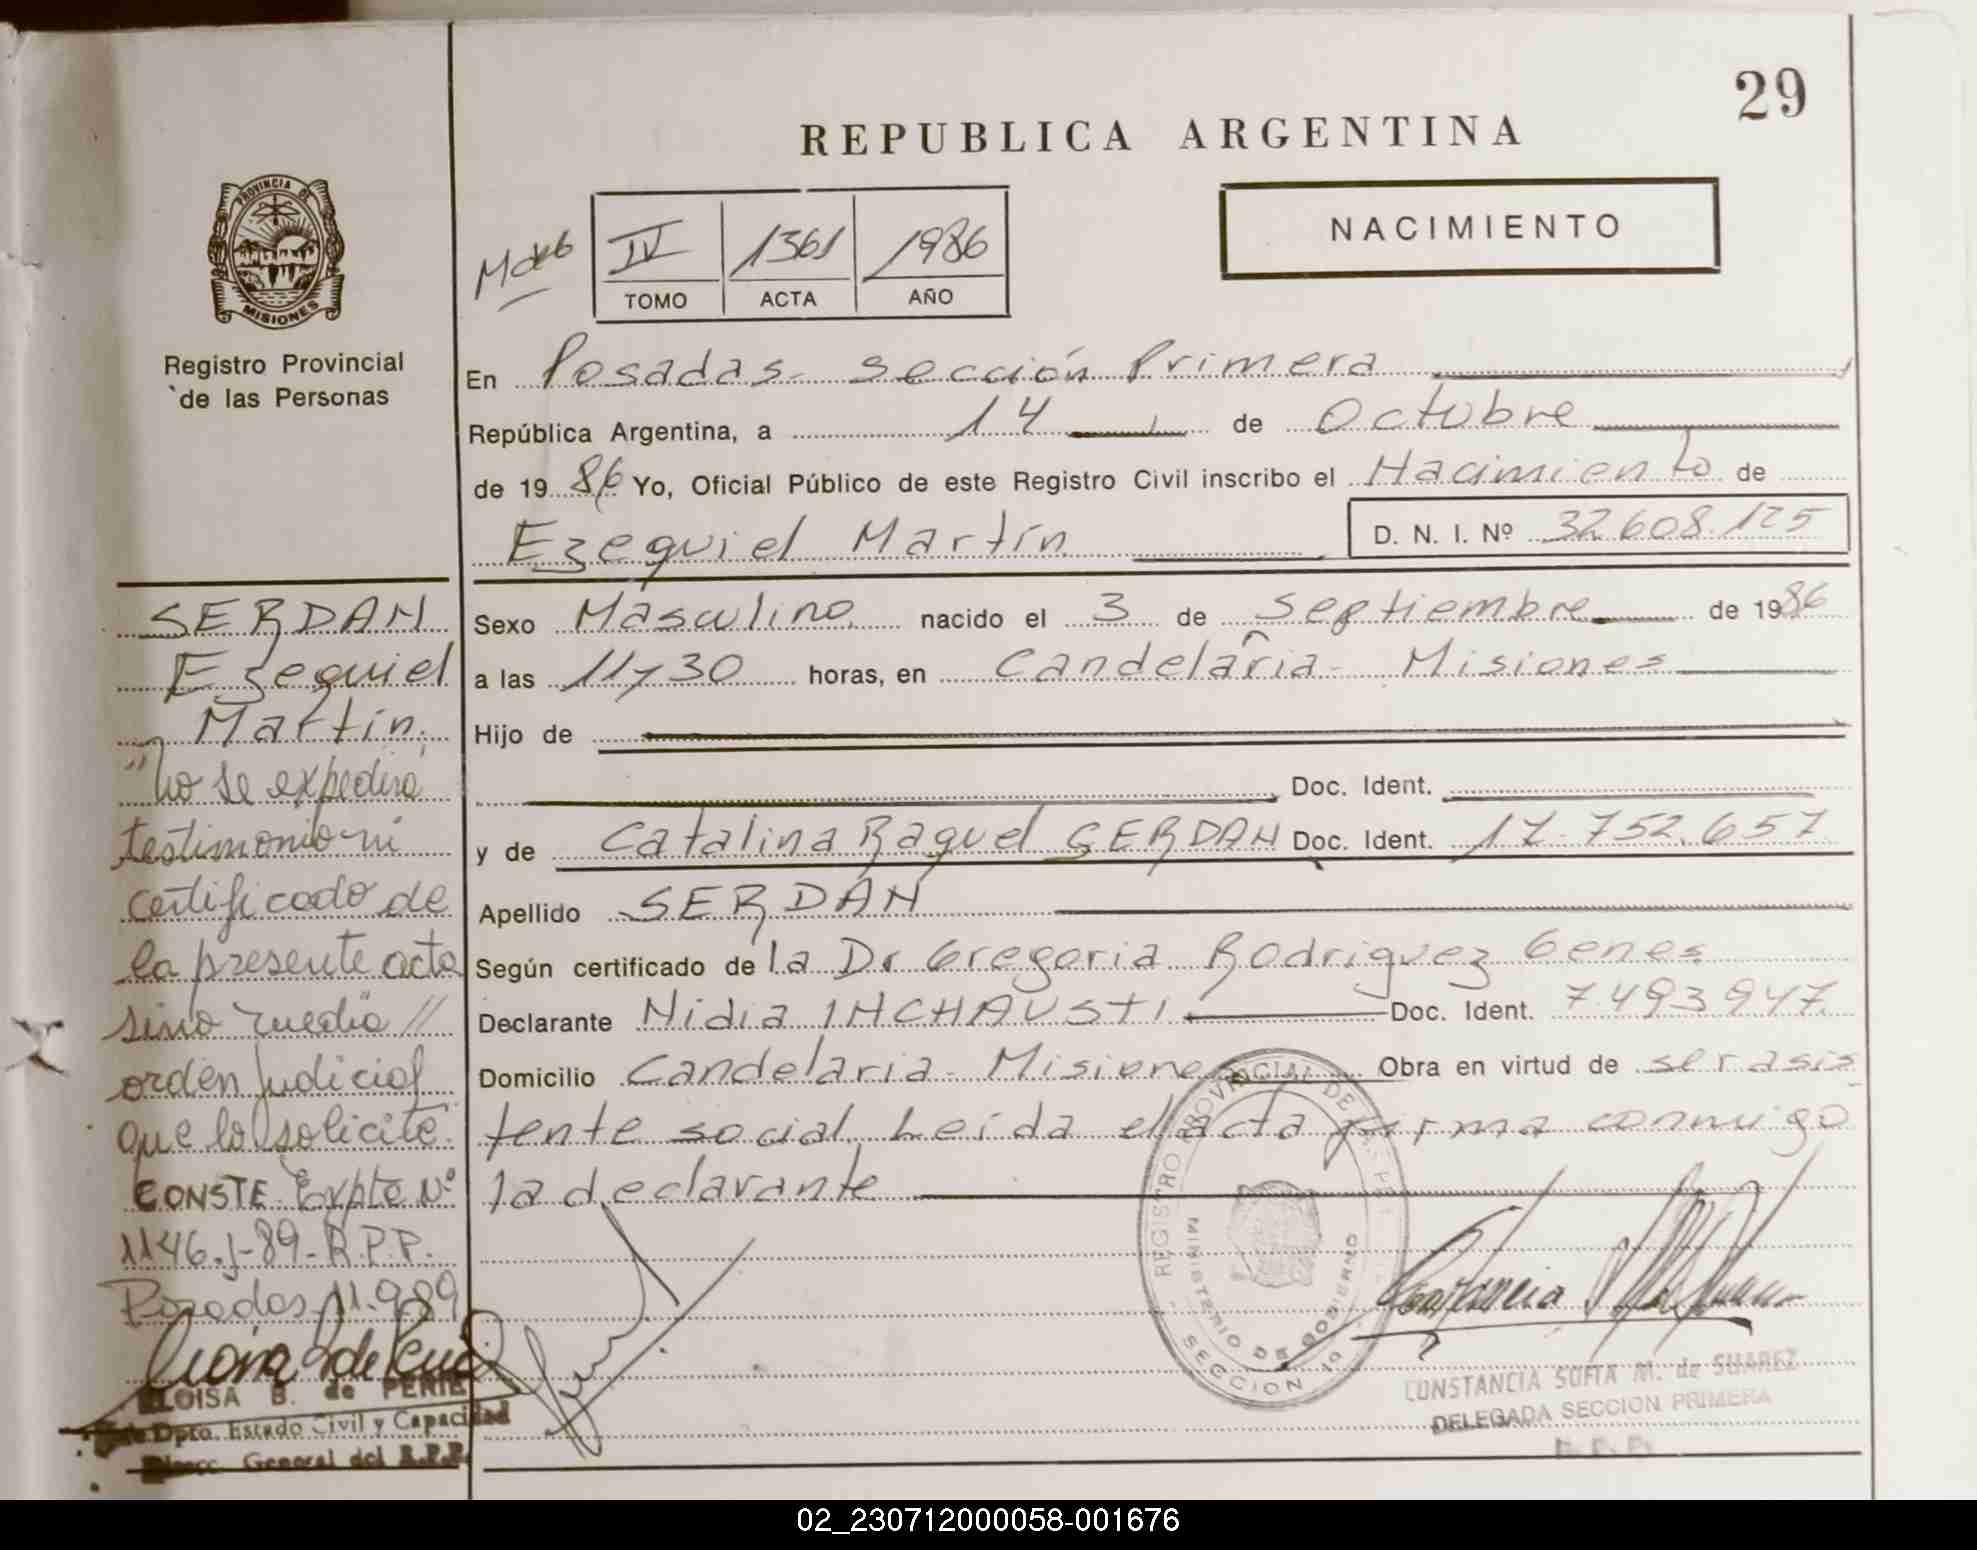 29
REPUBLICA ARGENTINA
NACIMIENTO
IV 1361 1986
TOMO ACTA AÑO
PROVINCIA DE MISIONES
Registro Provincial
de las Personas
En Posadas. Sección Primera
República Argentina, a 14 de Octubre
de 1986 Yo, Oficial Público de este Registro Civil inscribo el Nacimiento de
Ezequiel Martín D. N. I. Nº 32.608.125
Sexo Masculino. nacido el 3 de Septiembre de 1986
a las 11y30 horas, en Candelaria- Misiones
Hijo de
Doc. Ident.
y de Catalina Raquel SERDAN Doc. Ident. 17.752.657
Apellido SERDÁN
Según certificado de la Dr Gregoria Rodriguez Genes
Declarante Nidia INCHAUSTI Doc. Ident. 7.493.947.
Domicilio Candelaria- Misiones Obra en virtud de ser asis
tente social. Leída el acta firma conmigo
la declarante
SERDAN
Ezequiel
Martín.
"No se expedirá
testimonio ni
certificado de
la presente acta
sino media //
orden judicial
que lo solicite"
CONSTE Expte Nº
1146-J-89-R.P.P.
Posadas 11.9.89
ELOISA B. de PERIE
Dpto. Estado Civil y Capacidad
General del R.P.P.
REGISTRO PROVINCIAL DE LAS PER
MINISTERIO DE GOBIERNO
SECCION 1º
CONSTANCIA SOFIA M. de SUAREZ
DELEGADA SECCION PRIMERA
R. P. P.
02_230712000058-001676